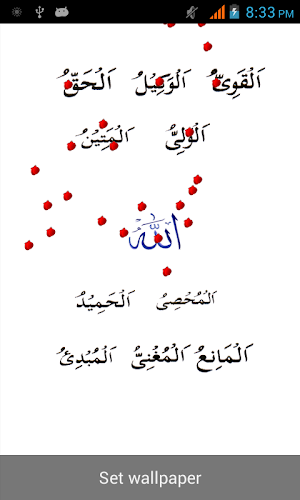 8:33 PM
اَلْقَوِىُّ اَلْوَكِيْلُ اَلْحَقُّ
اَلْوَلِىُّ اَلْمَتِيْنُ
اللّٰه
اَلْمُحْصِىُ اَلْحَمِيْدُ
اَلْمَانِعُ اَلْمُغْنِىُّ اَلْمُبْدِئُ
Set wallpaper